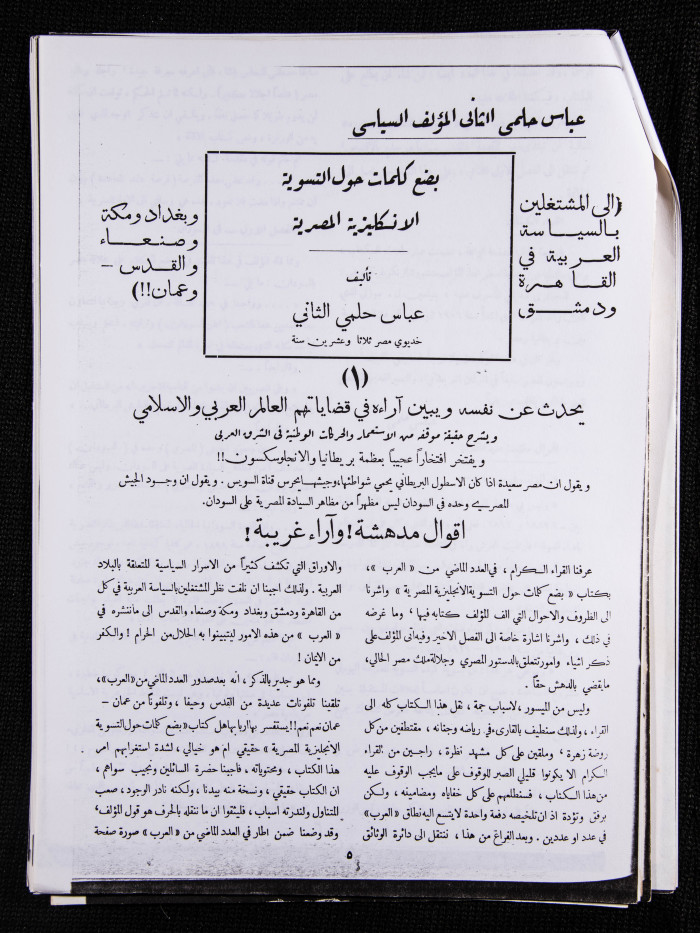 عباس حلمي الثاني المؤلف السياسي
(الى المشتغلين
بالسياسة
العربية في
القاهرة
ودمشق
بضع كلمات حول التسوية
الانكليزية المصرية
تأليف
عباس حلمي الثاني
خديوي مصر ثلاثا وعشرين سنة
وبغداد ومكة
وصنعاء
والقدس –
وعمان!!)
(١)
يحدث عن نفسه ويبين آراءه في قضايا تهم العالم العربي والاسلامي
ويشرح حقيقة موقفه من الاستعمار والحركات الوطنية في الشرق العربي
ويفتخر افتخاراً عجيباً بعظمة بريطانيا والانجلوسكسون!!
ويقول ان مصر سعيدة اذا كان الاسطول البريطاني يحمي شواطئها، وجيشها يحرس قناة السويس. ويقول ان وجود الجيش
المصري وحده في السودان ليس مظهراً من مظاهر السيادة المصرية على السودان.
اقوال مدهشة! وآراء غريبة!
عرفنا القراء الكرام، في العدد الماضي من « العرب »،
بكتاب « بضع كلمات حول التسوية الانجليزية المصرية » واشرنا
الى الظروف والاحوال التي الف المؤلف كتابه فيها، وما غرضه
في ذلك، واشرنا اشارة خاصة الى الفصل الاخير وفيه أتى المؤلف على
ذكر اشياء وامور تتعلق بالدستور المصري وجلالة ملك مصر الحالي،
ما يقضي بالدهش حقاً.
وليس من الميسور، لاسباب جمة، نقل هذا الكتاب كله الى
القراء، ولذلك سنطيف بالقارىء في رياضه وجناته، مقتطفين من كل
روضة زهرة، وملقين على كل مشهد نظرة، راجين من القراء
الكرام الا يكونوا قليلي الصبر للوقوف على ما يجب الوقوف عليه
من هذا الكتاب، فسنطلعهم على كل خفاياه ومضامينه، ولكن
برفق وتؤدة اذ ان تلخيصه دفعة واحدة لا يتسع اليه نطاق « العرب »
في عدد او عددين. وبعد الفراغ من هذا، ننتقل الى دائرة الوثائق
والاوراق التي تكشف كثيراً من الاسرار السياسية المتعلقة بالبلاد
العربية. ولذلك احببنا ان نلفت نظر المشتغلين بالسياسة العربية في كل
من القاهرة ودمشق وبغداد ومكة وصنعاء والقدس الى ما ننشره في
« العرب » من هذه الامور ليتبينوا به الحلال من الحرام! والكفر
من الايمان!
ومما هو جدير بالذكر، انه بعد صدور العدد الماضي من « العرب »،
تلقينا تلفونات عديدة من القدس وحيفا، وتلفوناً من عمان –
عمان نعم نعم!! يستفسر بها اربابها هل كتاب « بضع كلمات حول التسوية
الانجليزية المصرية » حقيقي ام هو خيالي، لشدة استغرابهم امر
هذا الكتاب، ومحتوياته، فاجبنا حضرة السائلين ونجيب سواهم،
ان الكتاب حقيقي، ونسخة منه بيدنا، ولكنه نادر الوجود، صعب
المتناول ولندرته اسباب، فليثقوا ان ما ننقله بالحرف هو قول المؤلف،
وقد وضعنا ضمن اطار في العدد الماضي من « العرب » صورة صفحة
٥